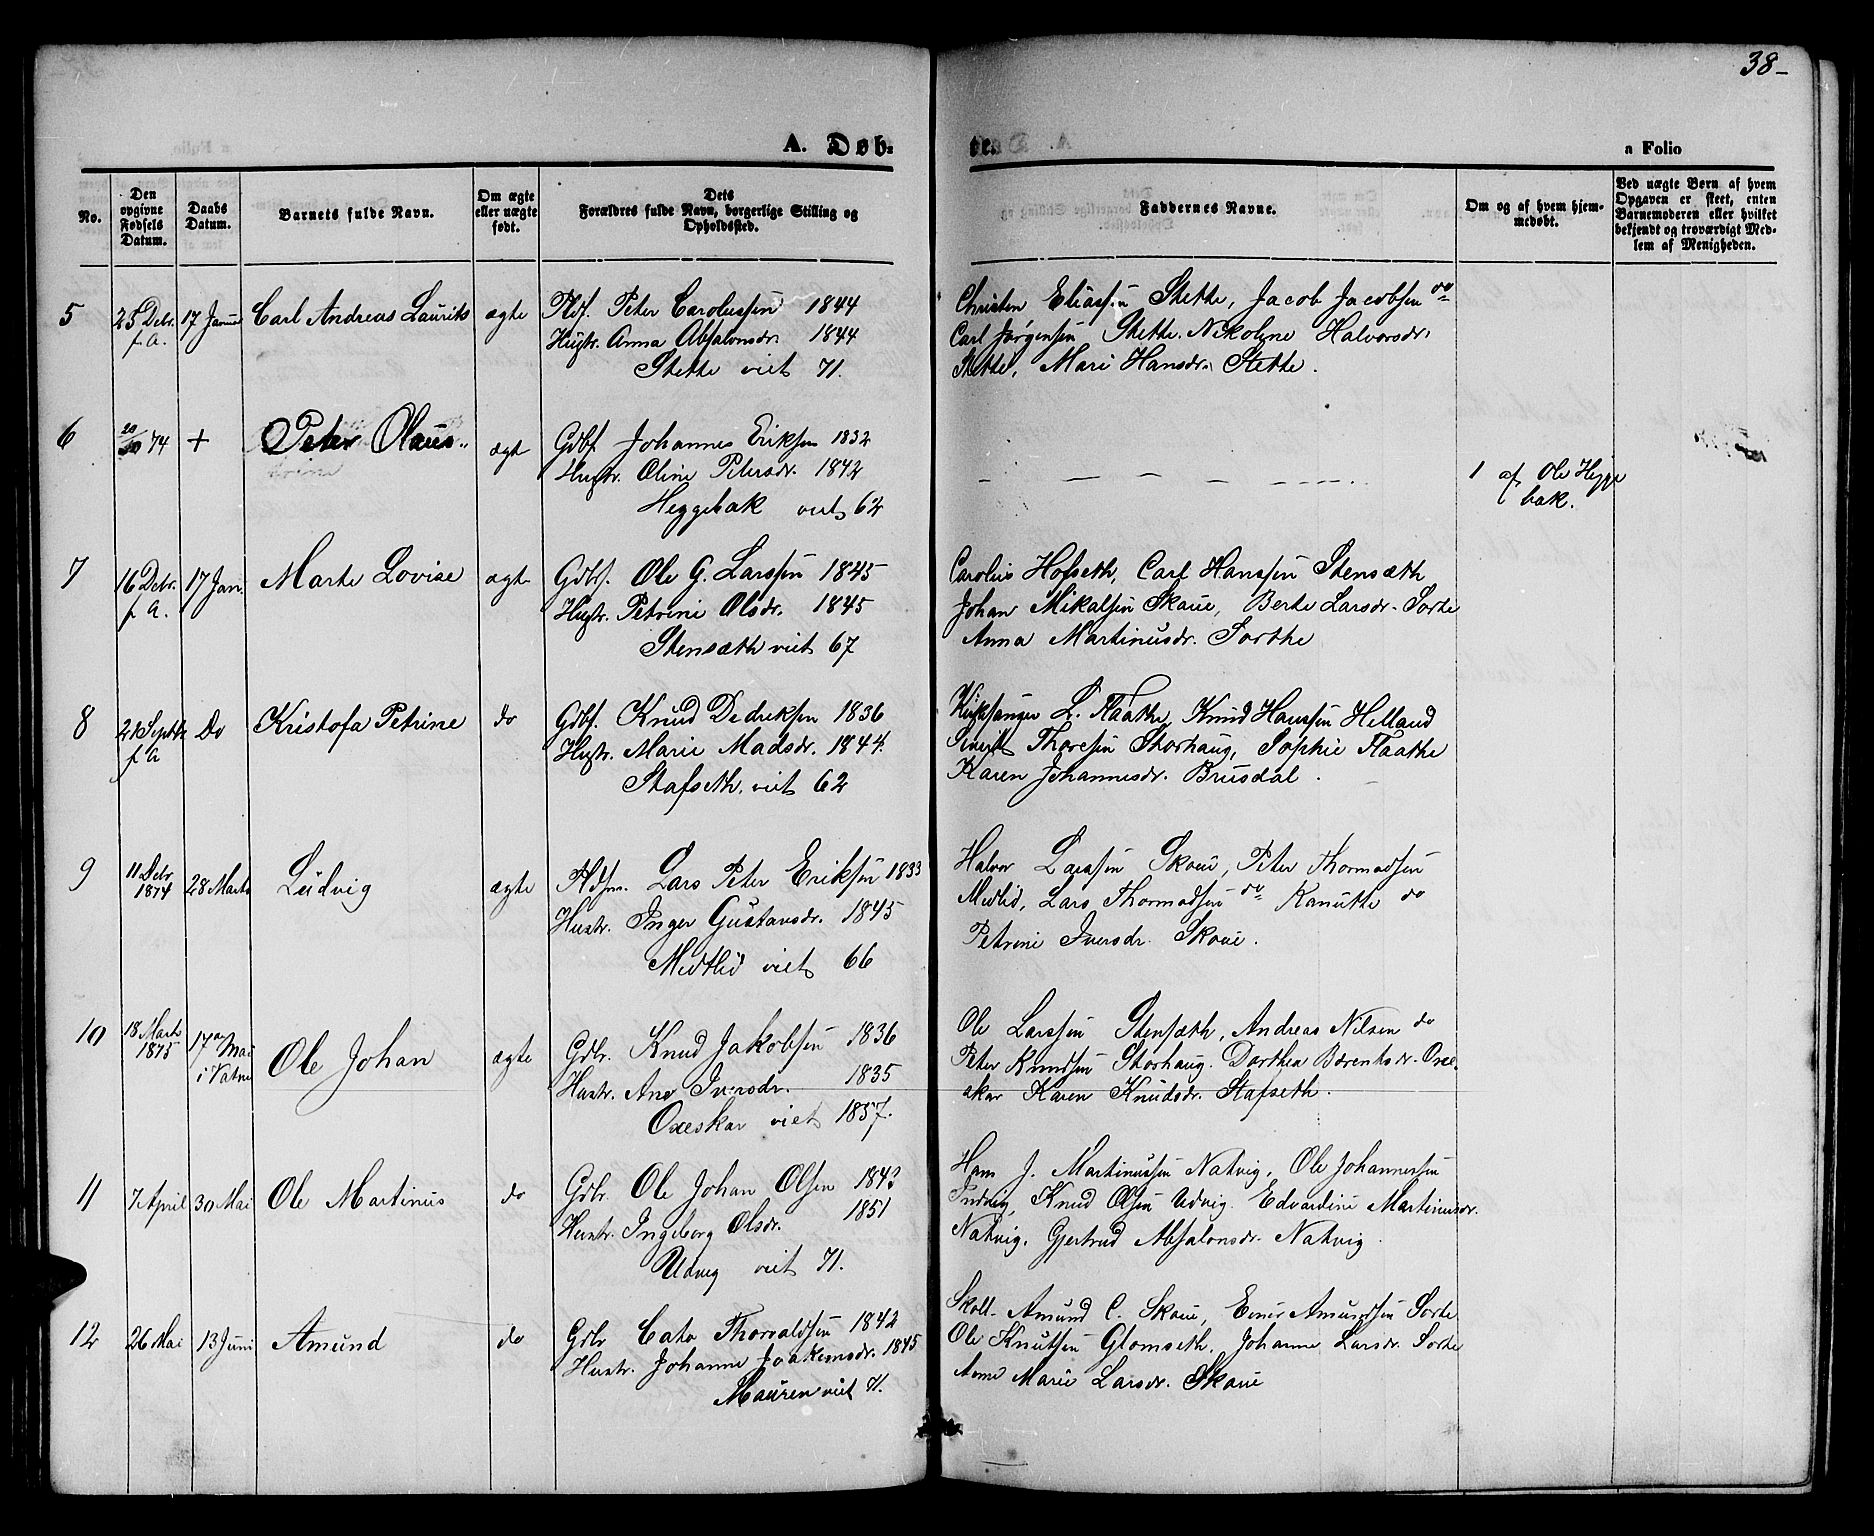 38-
A. Døb-
te.
a Folio
No.
Den
opgivne
Fødsels
Datum.
Daabs
Datum.
Barnets fulde Navn.
Om ægte
eller uægte
født.
Dets
Forældres fulde Navn, borgerlige Stilling og
Opholdssted.
Faddernes Navne.
Om og af hvem hjem-
medøbt.
Ved uægte Børn af hvem
Opgaven er skeet, enten
Barnemoderen eller hvilket
bekjendt og troværdigt Med-
lem af Menigheden.
5
25 Debr.
f. A.
17 Januar
Carl Andreas Laurits
ægte
Peter Carolussen 1844
Hustr. Anna Absalonsdr. 1844
Stette viet 71.
Christen Eliassen Stette, Jacob Jacobsen do
Carl Jørgensen Stette. Nikoline Halvorsdr.
Stette, Mari Hansdr. Stette.
6
74
+
Peter Olaus
ægte
Gdbf. Johannes Eriksen 1832
Hustr. Oline Petersdr. 1842
Heggebak viet 62
1 af Ole Hegge
bak.
7
16 Debr.
f A.
17 Jan.
Marte Lovise
ægte
Gdbf. Ole G. Larssen 1845
Hustr. Petrine Olsdr. 1845
Stensæth viet 67
Carolus Hofseth, Carl Hanssen Stensæth
Johan Mikalsen Skoue, Berte Larsdr. Sorte
Anna Martinusdr. Sorthe
8
21 Septbr
f A
Do
Kristofa Petrine
do
Gdbf. Knud Dedreksen 1836
Hustr. Marie Madsdr. 1844.
Stafseth. viet 62
Kirksanger L. Flaathe, Knud Hanssen Helland
Sivert Thoresen Storhaug, Sophie Flaathe
Karen Johannesdr. Brusdal.
9
11 Debr
1874
28 Marts
Ludvig
ægte
Lars Peter Eriksen 1833
Hustr. Inger Gustavsdr. 1845
Midtlid viet 66
Halvor Larssen Skoue, Peter Thormodsen
Midtlid, Lars Thormodsen do Kanutte do
Petrine Iversdr. Skoue.
10
18 Marts
1875
17de Mai
i Vatne
Ole Johan
ægte
Gdbr. Knud Jakobsen 1836
Hustr. Ane Iversdr. 1835
Oxeskar viet 1857.
Ole Larssen Stensæth, Andreas Nilsen do
Peter Knudsen Storhaug. Dorthea Bærentsdr. Oxe-
skar Karen Knudsdr. Stafseth.
11
7 April
30 Mai
Ole Martinus
do
Gdbr. Ole Johan Olsen 1843
Hustr. Ingeborg Olsdr. 1851
Udvig viet 71.
Hans J. Martinussen Natvig, Ole Johannessen
Indvig, Knud Olsen Udvig. Edvardine Martinusdr.
Natvig, Gjertrud Absalonsdr. Natvig.
12
26 Mai
13 Juni
Amund
do
Gdbr Cato Thorvaldsen 1842
Hustr. Johanne Joakimsdr. 1845
Mauren viet 71.
Skoll. Amund C. Skoue, Einar Amundsen Sorte
Ole Knutsen Glomseth, Johanne Larsdr. Sorte
Anne Marie Larsdr. Skoue